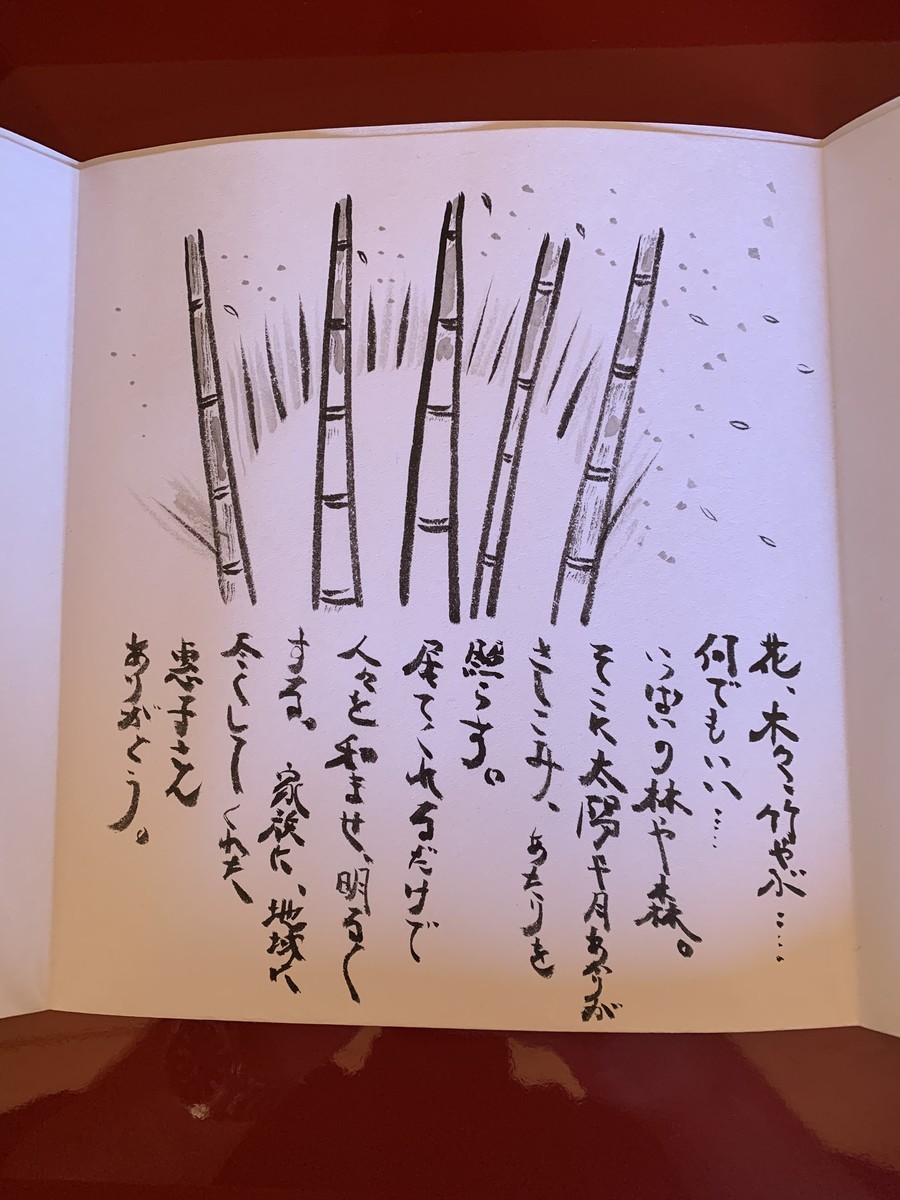 花、木々、竹やぶ……
何でもいい……
いっぱいの林や森。
そこに太陽や月あかりが
さしこみ、あたりを
照らす。
居てくれるだけで
人々を和ませ、明るく
する。家族に、地域に
尽くしてくれた
恵子さん
ありがとう。